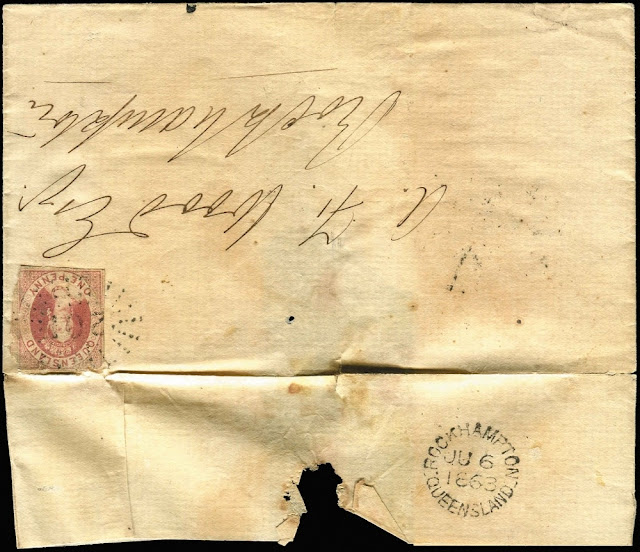 A. H. Wood Esq.
Rockhampton
QUEENSLAND
ONE PENNY
ROCKHAMPTON
JU 6
1863
QUEENSLAND